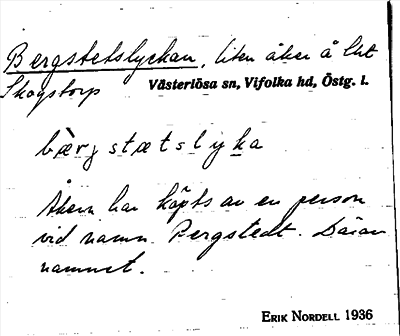 Bergstetslyckan, liten åker å lht
Skogstorp
Västerlösa sn, Vifolka hd, Östg. l.
bæ̀rgstætslyka
Åkern har köpts av en person
vid namn Bergstedt. Därav
namnet.
ERIK NORDELL 1936